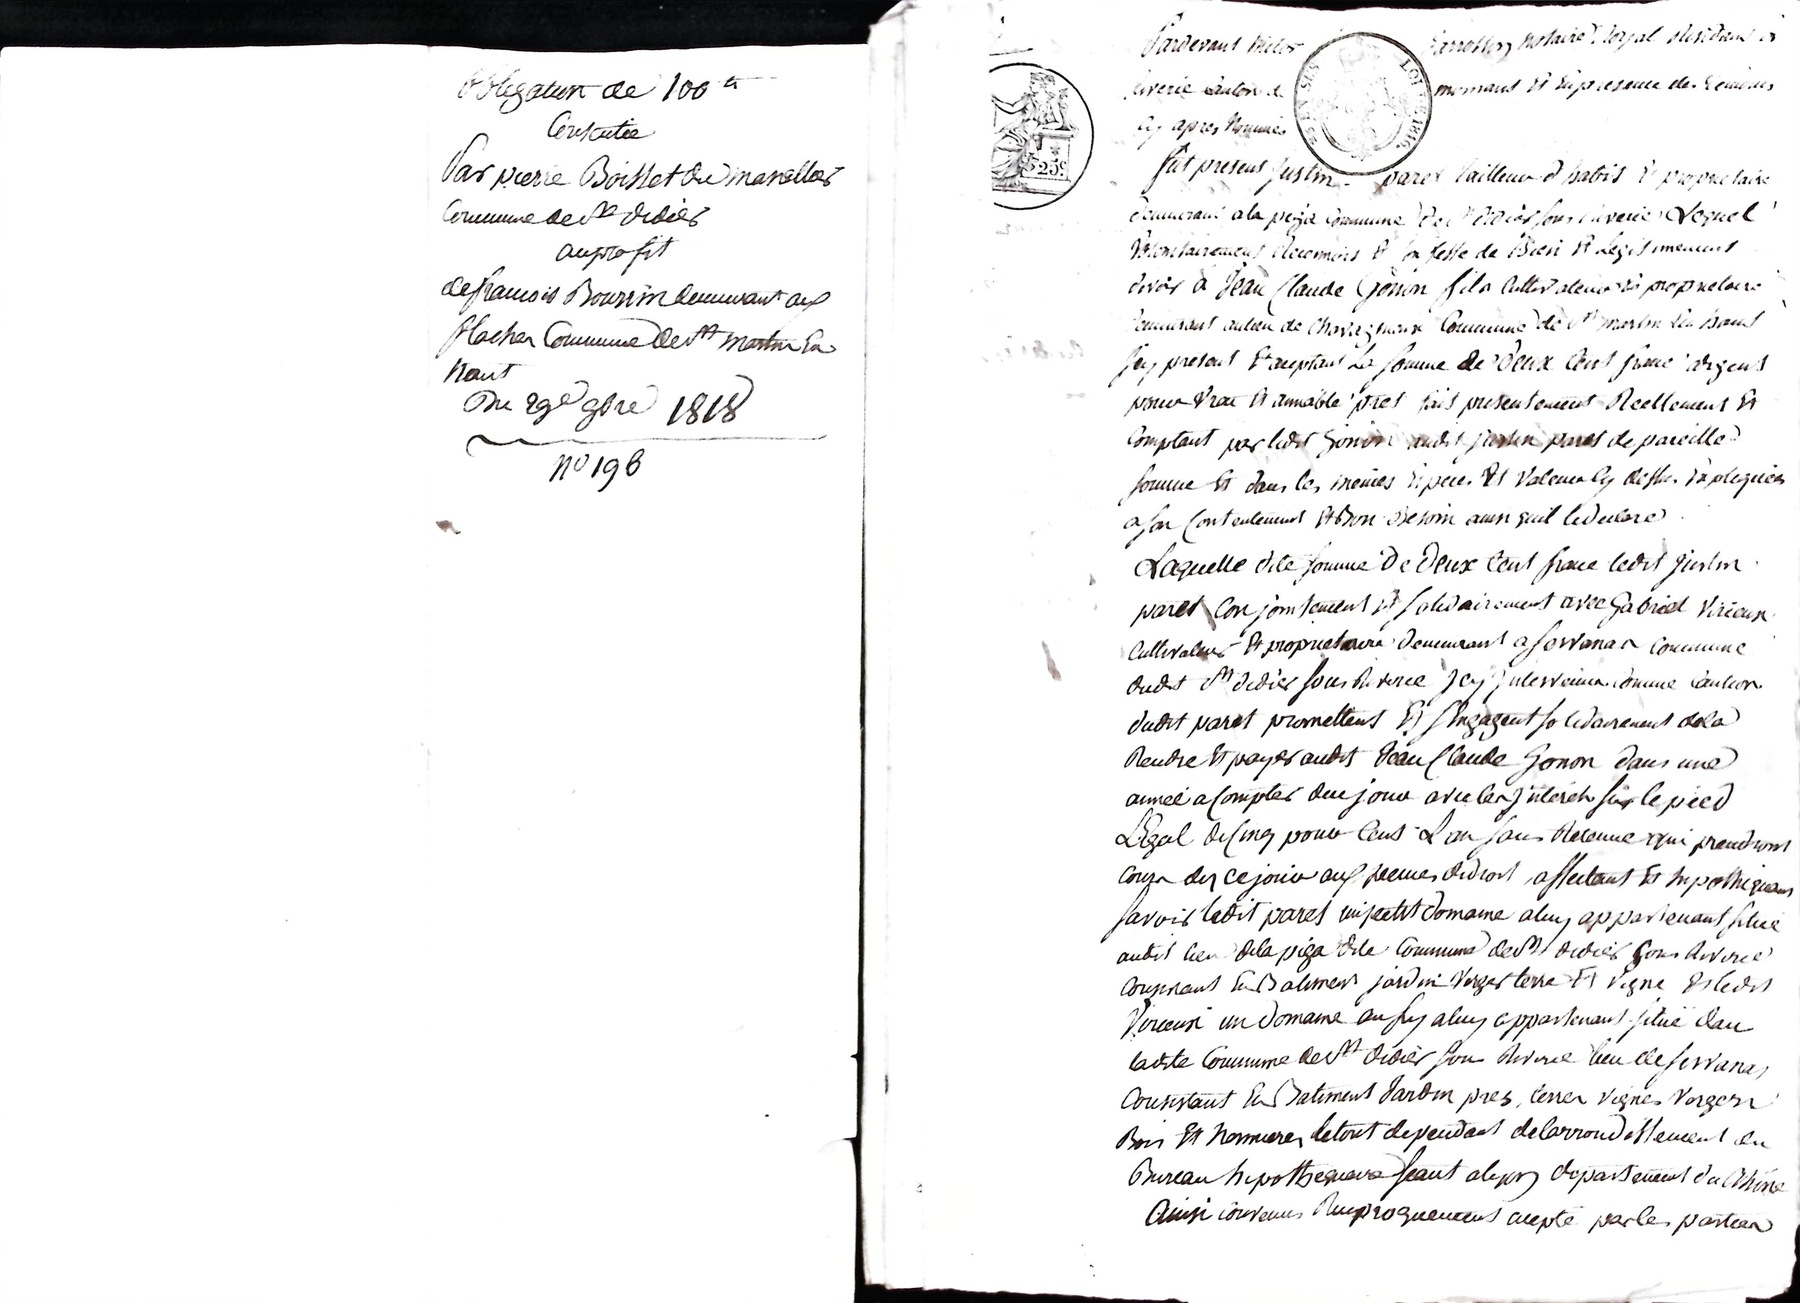 Obligation de 100 tt
Consentie
Par pierre Boisset du marallier
Commune de St didier
au profit
de francois Bourrin demeurant au
plachey Commune de St martin En
haut
Du 29e 9bre 1818
No 196
Pardevant notaire Royal résidant à
riverie canton de mornant Et En présence des témoins
Cy après Nommés
LOI DE 1816.
25c
fut présent justin paret tailleur d'habits Et propriétaire
demeurant a la piga commune de St didier sous riverie Lequel
Volontairement Reconnois Et Confesse de Bien Et Légitimement
devoir à Jean Claude Gonon fils Cultivateur Et propriétaire
demeurant au lieu de Chavagneux Commune de St martin En haut
Icy present Et aceptant La somme de Deux Cent franc argent
pour Vrai Et amiable pret fait presentement Reellement Et
Comptant par ledit Gonon audit justin paret de pareille
somme Et dans les mêmes Espèces Et Valeur Cy dessus Expliquées
a son Contentement Et Bon Besoin ainsi quil le declare
Laquelle dite somme De Deux Cent franc ledit justin
paret Conjointement Et solidairement avec Gabriel Virieux
Cultivateur Et propriétaire Demeurant a servanas commune
dudit St didier sous Riverie Icy Intervenu Comme Caution
dudit paret promettent Et s'Engagent solidairement de la
Rendre Et payer audit Jean Claude Gonon dans une
année a Compter de ce jour avec les Intérêts sur le pied
Légal de Cinq pour Cent L'an sans Retenue qui prendront
Cours dez ce jour aux peines de droit affectant Et hypothéquant
savoir ledit paret un petit Domaine a luy appartenant situé
audit lieu de la piga dite Commune de St didier sous Riverie
Consistant En Batiment jardin Verger terre Et Vigne Et ledit
Virieux un Domaine aussy a luy appartenant situé dans
ladite Commune de St didier sous Riverie lieu de servanas
Consistant En Batiment Jardin pres, terres vignes Vergers
Bois Et hermures le tout dependant de larrondissement du
Bureau hypothequaire séant a lyon departement du Rhône
Ainsi convenus Reciproquement accepté par les parties